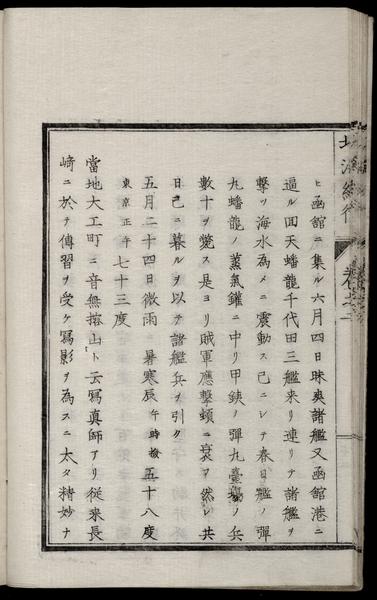 ヒ函館ニ集ル六月四日昧爽諸艦又函館港ニ
逼ル回天蟠龍千代田三艦来リ連リテ諸艦ヲ
擊ツ海水為メニ震動ス已ニシテ春日艦ノ彈
丸蟠龍ノ蒸氣鑵ニ中リ甲鉄ノ彈丸臺場ノ兵
數十ヲ斃ス是ヨリ賊軍應擊頓ニ衰ヲ然レ共
日已ニ暮ルヲ以テ諸艦兵ヲ引ク
五月二十四日微雨ニ暑寒辰午時撿五十八度
東京正午七十三度
當地大工町ニ音無榕山ト云寫真師アリ従来長
﨑ニ於テ傳習ヲ受ケ寫影ヲ為スニ太タ精妙ナ